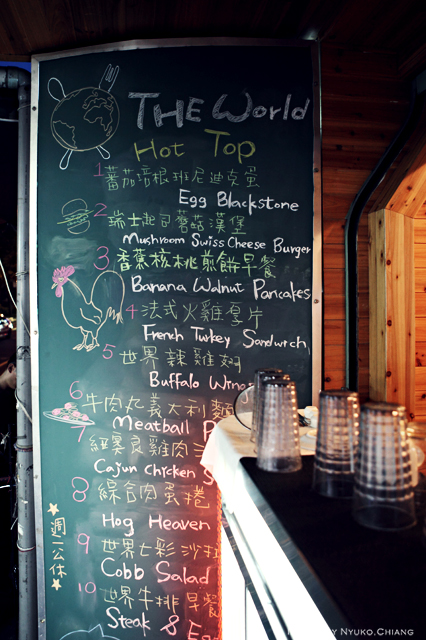 The World
Hot Top
1 蕃茄培根班尼迪克蛋
Egg Blackstone
2 瑞士起司蘑菇漢堡
Mushroom Swiss Cheese Burger
3 香蕉核桃煎餅早餐
Banana Walnut Pancakes
4 法式火雞疊片
French Turkey Sandwich
5 世界辣雞翅
Buffalo Wings
6 牛肉丸義大利麵
Meatball
7 紐奧良雞肉
Cajun Chicken
8 綜合肉蛋捲
Hog Heaven
9 世界七彩沙拉
Cobb Salad
10 世界牛排早餐
Steak &
週二公休
BY NYUKO.CHIANG